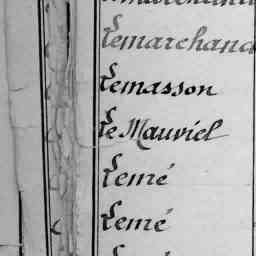 Lemarchand
Lemasson
Le Mauviel
Lemé
Lemé